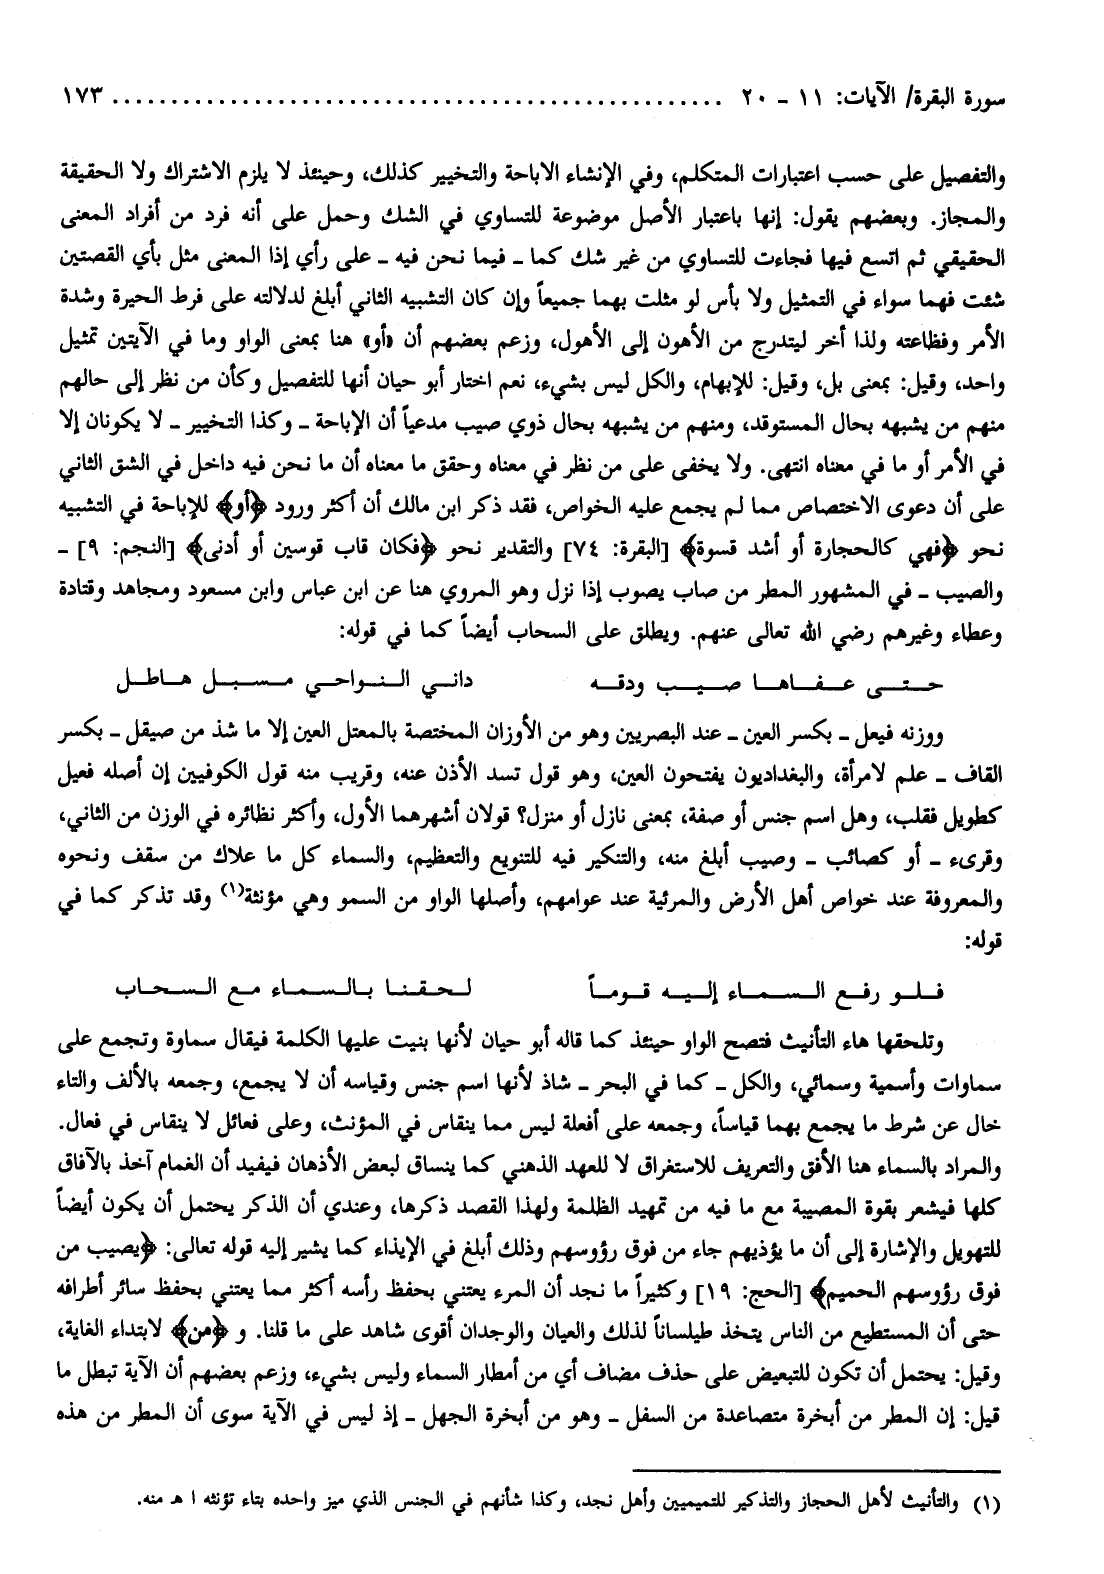 سورة البقرة/ الآيات: ١١ - ٢٠ ................................................... ١٧٣
والتفصيل على حسب اعتبارات المتكلم، وفي الإنشاء الاباحة والتخيير كذلك، وحينئذ لا يلزم الاشتراك ولا الحقيقة
والمجاز. وبعضهم يقول: إنها باعتبار الأصل موضوعة للتساوي في الشك وحمل على أنه فرد من أفراد المعنى
الحقيقي ثم اتسع فيها فجاءت للتساوي من غير شك كما - فيما نحن فيه - على رأي إذا المعنى مثل بأي القصتين
شئت فهما سواء في التمثيل ولا بأس لو مثلت بهما جميعاً وإن كان التشبيه الثاني أبلغ لدلالته على فرط الحيرة وشدة
الأمر وفظاعته ولذا أخر ليتدرج من الأهون إلى الأهول، وزعم بعضهم أن «أو» هنا بمعنى الواو وما في الآيتين تمثيل
واحد، وقيل: بمعنى بل، وقيل: للإبهام، والكل ليس بشيء، نعم اختار أبو حيان أنها للتفصيل وكأن من نظر إلى حالهم
منهم من يشبهه بحال المستوقد، ومنهم من يشبهه بحال ذوي صيب مدعياً أن الإباحة - وكذا التخيير - لا يكونان إلا
في الأمر أو ما في معناه انتهى. ولا يخفى على من نظر في معناه وحقق ما معناه أن ما نحن فيه داخل في الشق الثاني
على أن دعوى الاختصاص مما لم يجمع عليه الخواص، فقد ذكر ابن مالك أن أكثر ورود ﴿أو﴾ للإباحة في التشبيه
نحو ﴿فهي كالحجارة أو أشد قسوة﴾ [البقرة: ٧٤] والتقدير نحو ﴿فكان قاب قوسين أو أدنى﴾ [النجم: ٩] -
والصيب - في المشهور المطر من صاب يصوب إذا نزل وهو المروي هنا عن ابن عباس وابن مسعود ومجاهد وقتادة
وعطاء وغيرهم رضي الله تعالى عنهم. ويطلق على السحاب أيضاً كما في قوله:
حتى عفاها صيب ودقه    داني النواحي مسبل هاطل
ووزنه فيعل - بكسر العين - عند البصريين وهو من الأوزان المختصة بالمعتل العين إلا ما شذ من صيقل - بكسر
القاف - علم لامرأة، والبغداديون يفتحون العين، وهو قول تسد الأذن عنه، وقريب منه قول الكوفيين إن أصله فعيل
كطويل فقلب، وهل اسم جنس أو صفة، بمعنى نازل أو منزل؟ قولان أشهرهما الأول، وأكثر نظائره في الوزن من الثاني،
وقرىء - أو كصائب - وصيب أبلغ منه، والتنكير فيه للتنويع والتعظيم، والسماء كل ما علاك من سقف ونحوه
والمعروفة عند خواص أهل الأرض والمرئية عند عوامهم، وأصلها الواو من السمو وهي مؤنثة(١) وقد تذكر كما في
قوله:
فلو رفع السماء إليه قوماً    لحقنا بالسماء مع السحاب
وتلحقها هاء التأنيث فتصح الواو حينئذ كما قاله أبو حيان لأنها بنيت عليها الكلمة فيقال سماوة وتجمع على
سماوات وأسمية وسمائي، والكل - كما في البحر - شاذ لأنها اسم جنس وقياسه أن لا يجمع، وجمعه بالألف والتاء
خال عن شرط ما يجمع بهما قياساً، وجمعه على أفعلة ليس مما ينقاس في المؤنث، وعلى فعائل لا ينقاس في فعال.
والمراد بالسماء هنا الأفق والتعريف للاستغراق لا للعهد الذهني كما ينساق لبعض الأذهان فيفيد أن الغمام آخذ بالآفاق
كلها فيشعر بقوة المصيبة مع ما فيه من تمهيد الظلمة ولهذا القصد ذكرها، وعندي أن الذكر يحتمل أن يكون أيضاً
للتهويل والإشارة إلى أن ما يؤذيهم جاء من فوق رؤوسهم وذلك أبلغ في الإيذاء كما يشير إليه قوله تعالى: ﴿يصيب من
فوق رؤوسهم الحميم﴾ [الحج: ١٩] وكثيراً ما نجد أن المرء يعتني بحفظ رأسه أكثر مما يعتني بحفظ سائر أطرافه
حتى أن المستطيع من الناس يتخذ طيلساناً لذلك والعيان والوجدان أقوى شاهد على ما قلنا. و ﴿من﴾ لابتداء الغاية،
وقيل: يحتمل أن تكون للتبعيض على حذف مضاف أي من أمطار السماء وليس بشيء، وزعم بعضهم أن الآية تبطل ما
قيل: إن المطر من أبخرة متصاعدة من السفل - وهو من أبخرة الجهل - إذ ليس في الآية سوى أن المطر من هذه
(١) والتأنيث لأهل الحجاز والتذكير للتميميين وأهل نجد، وكذا شأنهم في الجنس الذي ميز واحده بتاء تؤنثه ا هـ منه.